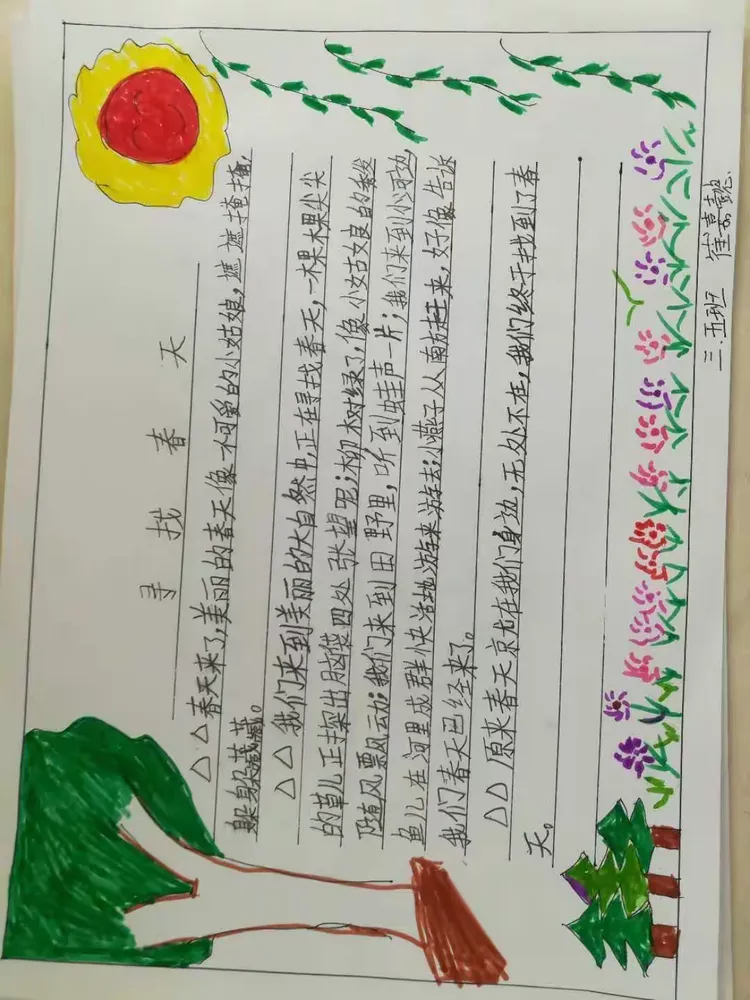 寻找春天
△△春天来了,美丽的春天像个可爱的小姑娘,遮遮掩掩,
躲躲藏藏。
△△我们来到美丽的大自然中,正在寻找春天,一棵棵尖尖
的草儿正探出脑袋四处张望呢;柳树绿了,像小姑娘的秀发
随风飘动;我们来到田野里,听到蛙声一片;我们来到小河边,
鱼儿在河里成群快活地游来游去;小燕子从南方赶来,好像告诉
我们春天已经来了。
△△原来春天就在我们身边,无处不在,我们终于找到了春
天。
三.五班 崔嘉懿